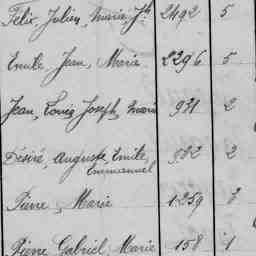 Félix, Julien, Marie Jh 2492 5
Emile, Jean, Marie 2296 5
Jean, Louis, Joseph, Marie 931 2
Désiré, Auguste, Emile, 932 2
Emmanuel
Pierre, Marie 1259
Pierre Gabriel, Marie 158 1